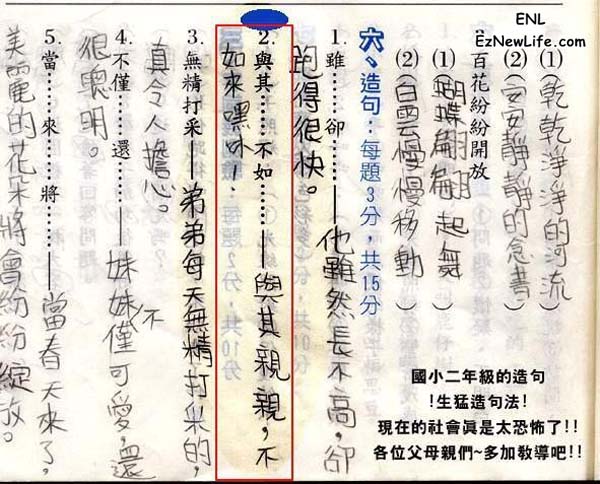 ENL
EzNewLife.com
(1)(乾乾淨淨的河流)
(2)(安安靜靜的念書)
2.百花紛紛開放
(1)(蝴蝶翩翩起舞)
(2)(白雲慢慢移動)
六、造句：每題3分，共15分
1.雖……卻……——他雖然長不高，卻
跑得很快。
2.與其……不如……——與其親親，不
如來嘿咻！
3.無精打采——弟弟每天無精打采的，
真令人擔心。
4.不僅……還……——妹妹不僅可愛，還
很聰明。
5.當……來……將……——當春天來了，
美麗的花朵將會紛紛綻放。
國小二年級的造句
!生猛造句法!
現在的社會真是太恐怖了!!
各位父母親們~多加敎導吧!!